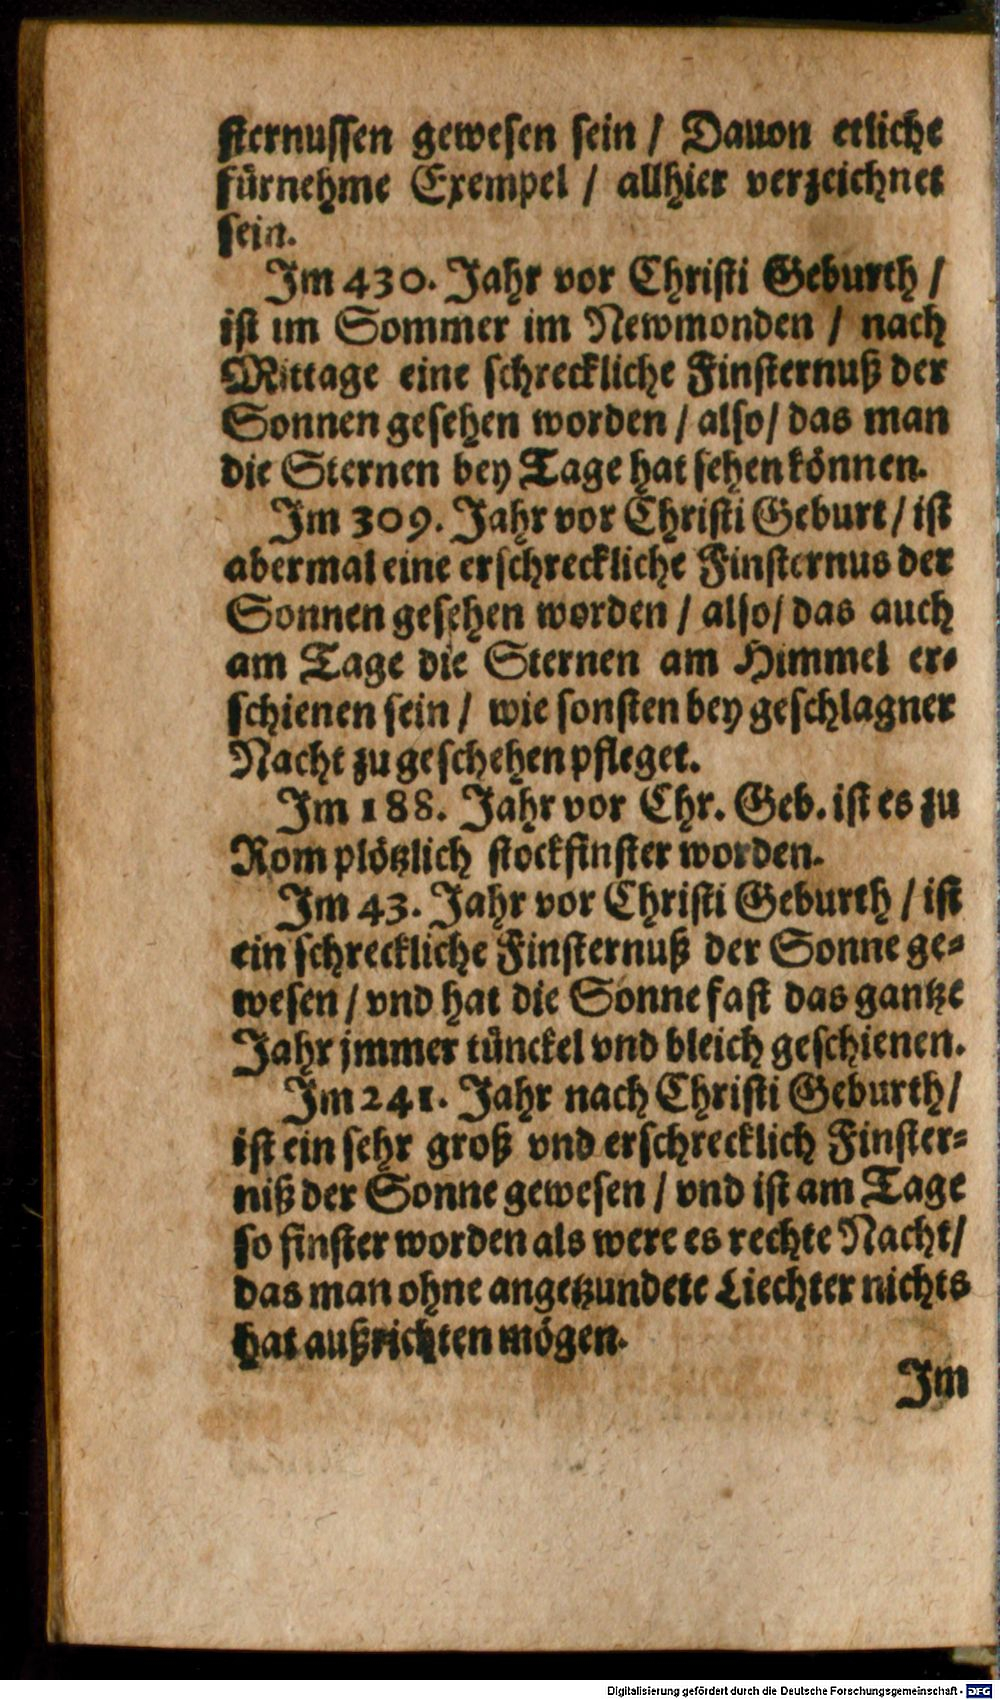 sternussen gewesen sein / Dauon etliche
fürnehme Exempel / allhier verzeichnet
sein.
Im 430. Jahr vor Christi Geburth /
ist im Sommer im Newmonden / nach
Mittage eine schreckliche Finsternuß der
Sonnen gesehen worden / also / das man
die Sternen bey Tage hat sehen können.
Im 309. Jahr vor Christi Geburt / ist
abermal eine erschreckliche Finsternus der
Sonnen gesehen worden / also / das auch
am Tage die Sternen am Himmel er-
schienen sein / wie sonsten bey geschlagner
Nacht zu geschehen pfleget.
Im 188. Jahr vor Chr. Geb. ist es zu
Rom plötzlich stockfinster worden.
Im 43. Jahr vor Christi Geburth / ist
ein schreckliche Finsternuß der Sonne ge-
wesen / vnd hat die Sonne fast das gantze
Jahr jmmer tünckel vnd bleich geschienen.
Im 241. Jahr nach Christi Geburth /
ist ein sehr groß vnd erschrecklich Finster-
niß der Sonne gewesen / vnd ist am Tage
so finster worden als were es rechte Nacht /
das man ohne angetzundete Liechter nichts
hat außrichten mögen.
Im
Digitalisierung gefördert durch die Deutsche Forschungsgemeinschaft - DFG